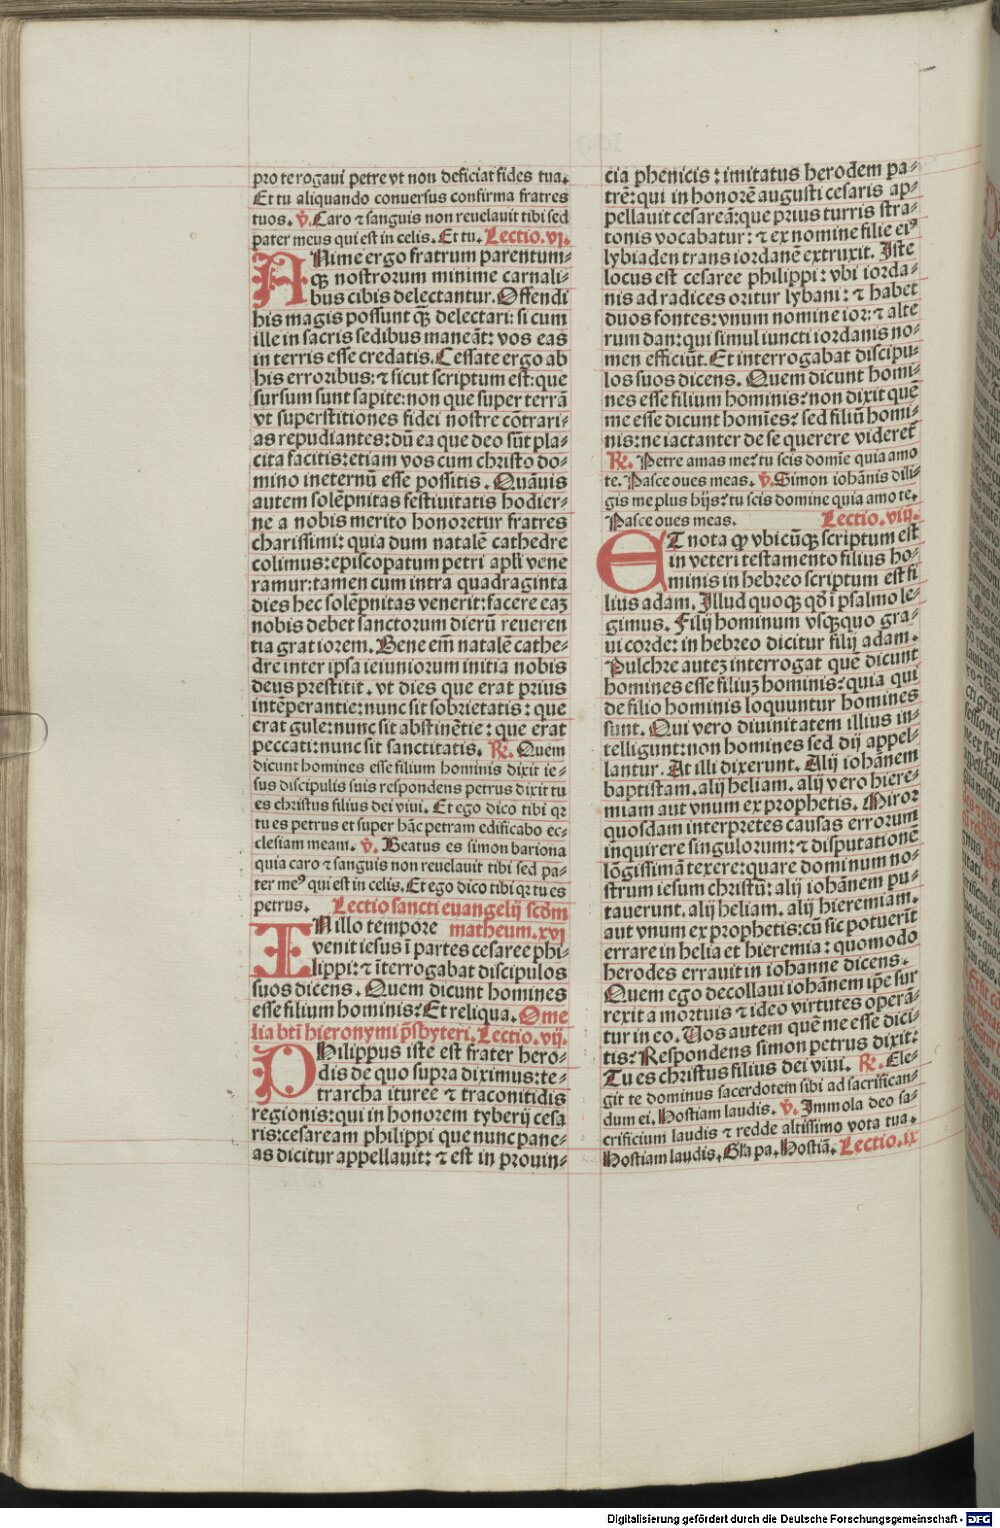 pro te rogaui petre vt non deficiat fides tua.
Et tu aliquando conuersus confirma fratres
tuos. v̄. Caro ⁊ sanguis non reuelauit tibi sed
pater meus qui est in celis. Et tu. Lectio. vi.
ANime ergo fratrum parentum-
qꝫ nostrorum minime carnali-
bus cibis delectantur. Offendi
his magis possunt qꝫ delectari: si cum
ille in sacris sedibus maneāt: vos eas
in terris esse credatis. Cessate ergo ab
his erroribus: ⁊ sicut scriptum est: que
sursum sunt sapite: non que super terrā
vt superstitiones fidei nostre cōtrari-
as repudiantes: dū ea que deo sūt pla-
cita facitis: etiam vos cum christo do-
mino ineternū esse possitis. Quāuis
autem solēpnitas festiuitatis hodier-
ne a nobis merito honoretur fratres
charissimi: quia dum natalē cathedre
colimus: episcopatum petri apli vene
ramur: tamen cum intra quadraginta
dies hec solēpnitas venerit: facere eaꝫ
nobis debet sanctorum dierū reueren
tia gratiorem. Bene em̄ natalē cathe-
dre inter ipsa ieiuniorum initia nobis
deus prestitit. vt dies que erat prius
intēperantie: nunc sit sobrietatis: que
erat gule: nunc sit abstinētie: que erat
peccati: nunc sit sanctitatis. R̄. Quem
dicunt homines esse filium hominis dixit ie-
sus discipulis suis respondens petrus dixit tu
es christus filius dei viui. Et ego dico tibi qꝛ
tu es petrus et super hāc petram edificabo ec-
clesiam meam. v̄. Beatus es simon bariona
quia caro ⁊ sanguis non reuelauit tibi sed pa-
ter meꝰ qui est in celis. Et ego dico tibi qꝛ tu es
petrus. Lectio sancti euangelij scdm̄
INillo tempore matheum. xvi
venit iesus ī partes cesaree phi-
lippi: ⁊ īterrogabat discipulos
suos dicens. Quem dicunt homines
esse filium hominis? Et reliqua. Ome
lia btī hieronymi p̄sbyteri. Lectio. vij.
PHilippus iste est frater hero-
dis de quo supra diximus: te-
trarcha ituree ⁊ traconitidis
regionis: qui in honorem tyberij cesa
ris: cesaream philippi que nunc pane-
as dicitur appellauit: ⁊ est in prouin-
cia phenicis: imitatus herodem pa-
trē: qui in honorē augusti cesaris ap-
pellauit cesareā: que prius turris stra-
tonis vocabatur: ⁊ ex nomine filie eiꝰ
lybiaden trans iordanē extruxit. Iste
locus est cesaree philippi: vbi iorda-
nis ad radices oritur lybani: ⁊ habet
duos fontes: vnum nomine ior: ⁊ alte
rum dan: qui simul iuncti iordanis no-
men efficiūt. Et interrogabat discipu-
los suos dicens. Quem dicunt homi-
nes esse filium hominis? non dixit quē
me esse dicunt homīes? sed filiū homi-
nis: ne iactanter de se querere videret̄
R̄. Petre amas me? tu scis domīe quia amo
te. Pasce oues meas. v̄. Simon iohānis dili-
gis me plus hijs? tu scis domine quia amo te.
Pasce oues meas. Lectio. viij.
ET nota qꝫ vbicūqꝫ scriptum est
in veteri testamento filius ho-
minis in hebreo scriptum est fi
lius adam. Illud quoqꝫ qd̄ ī psalmo le-
gimus. Filij hominum vsqꝫquo gra-
ui corde: in hebreo dicitur filij adam.
Pulchre auteꝫ interrogat quē dicunt
homines esse filiuꝫ hominis? quia qui
de filio hominis loquuntur homines
sunt. Qui vero diuinitatem illius in-
telligunt: non homines sed dij appel-
lantur. At illi dixerunt. Alij iohānem
baptistam. alij heliam. alij vero hiere-
miam aut vnum ex prophetis. Miror
quosdam interpretes causas errorum
inquirere singulorum: ⁊ disputationē
lōgissimā texere: quare dominum no-
strum iesum christū: alij iohānem pu-
tauerunt. alij heliam. alij hieremiam.
aut vnum ex prophetis: cū sic potuerit
errare in helia et hieremia: quomodo
herodes errauit in iohanne dicens.
Quem ego decollaui iohānem ip̄e sur
rexit a mortuis ⁊ ideo virtutes operā-
tur in eo. Uos autem quē me esse dici-
tis? Respondens simon petrus dixit:
Tu es christus filius dei viui. R̄. Ele-
git te dominus sacerdotem sibi ad sacrifican-
dum ei. Hostiam laudis. v̄. Immola deo sa-
crificium laudis ⁊ redde altissimo vota tua.
Hostiam laudis. Gl̄a pa. Hostiā. Lectio. ix
Digitalisierung gefördert durch die Deutsche Forschungsgemeinschaft - DFG